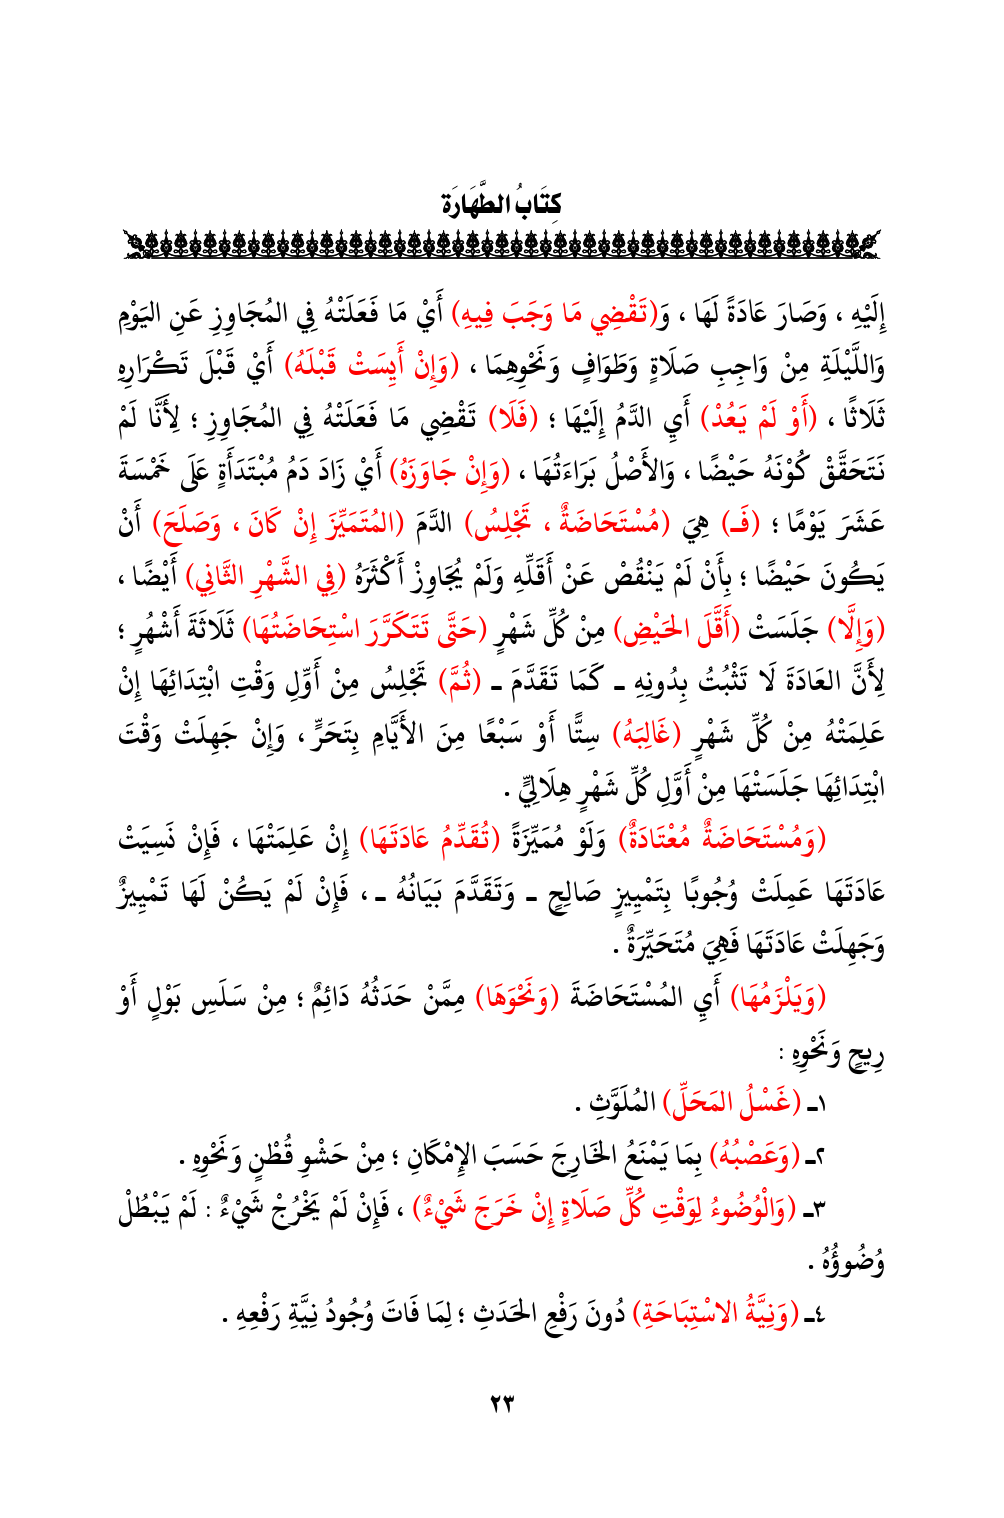 كِتَابُ الطَّهَارَة
إِلَيْهِ ، وَصَارَ عَادَةً لَهَا ، وَ(تَقْضِي مَا وَجَبَ فِيهِ) أَيْ مَا فَعَلَتْهُ فِي المُجَاوِزِ عَنِ اليَوْمِ
وَاللَّيْلَةِ مِنْ وَاجِبِ صَلَاةٍ وَطَوَافٍ وَنَحْوِهِمَا ، (وَإِنْ أَيِسَتْ قَبْلَهُ) أَيْ قَبْلَ تَكْرَارِهِ
ثَلَاثًا ، (أَوْ لَمْ يَعُدْ) أَيِ الدَّمُ إِلَيْهَا ؛ (فَلَا) تَقْضِي مَا فَعَلَتْهُ فِي المُجَاوِزِ ؛ لِأَنَّا لَمْ
نَتَحَقَّقْ كُوْنَهُ حَيْضًا ، وَالأَصْلُ بَرَاءَتُهَا ، (وَإِنْ جَاوَزَهُ) أَيْ زَادَ دَمُ مُبْتَدَأَةٍ عَلَى خَمْسَةَ
عَشَرَ يَوْمًا ؛ (فَـ) هِيَ (مُسْتَحَاضَةٌ ، تَجْلِسُ) الدَّمَ (المُتَمَيِّزَ إِنْ كَانَ ، وَصَلَحَ) أَنْ
يَكُونَ حَيْضًا ؛ بِأَنْ لَمْ يَنْقُصْ عَنْ أَقَلِّهِ وَلَمْ يُجَاوِزْ أَكْثَرَهُ (فِي الشَّهْرِ الثَّانِي) أَيْضًا ،
(وَإِلَّا) جَلَسَتْ (أَقَلَّ الحَيْضِ) مِنْ كُلِّ شَهْرٍ (حَتَّى تَتَكَرَّرَ اسْتِحَاضَتُهَا) ثَلَاثَةَ أَشْهُرٍ ؛
لِأَنَّ العَادَةَ لَا تَثْبُتُ بِدُونِهِ ـ كَمَا تَقَدَّمَ ـ (ثُمَّ) تَجْلِسُ مِنْ أَوَّلِ وَقْتِ ابْتِدَائِهَا إِنْ
عَلِمَتْهُ مِنْ كُلِّ شَهْرٍ (غَالِبَهُ) سِتًّا أَوْ سَبْعًا مِنَ الأَيَّامِ بِتَحَرٍّ ، وَإِنْ جَهِلَتْ وَقْتَ
ابْتِدَائِهَا جَلَسَتْهَا مِنْ أَوَّلِ كُلِّ شَهْرٍ هِلَالِيٍّ .
(وَمُسْتَحَاضَةٌ مُعْتَادَةٌ) وَلَوْ مُمَيِّزَةً (تُقَدِّمُ عَادَتَهَا) إِنْ عَلِمَتْهَا ، فَإِنْ نَسِيَتْ
عَادَتَهَا عَمِلَتْ وُجُوبًا بِتَمْيِيزٍ صَالِحٍ ـ وَتَقَدَّمَ بَيَانُهُ ـ ، فَإِنْ لَمْ يَكُنْ لَهَا تَمْيِيزٌ
وَجَهِلَتْ عَادَتَهَا فَهِيَ مُتَحَيِّرَةٌ .
(وَيَلْزَمُهَا) أَيِ المُسْتَحَاضَةَ (وَنَحْوَهَا) مِمَّنْ حَدَثُهُ دَائِمٌ ؛ مِنْ سَلَسِ بَوْلٍ أَوْ
رِيحٍ وَنَحْوِهِ :
١ـ (غَسْلُ المَحَلِّ) المُلَوَّثِ .
٢ـ (وَعَصْبُهُ) بِمَا يَمْنَعُ الخَارِجَ حَسَبَ الإِمْكَانِ ؛ مِنْ حَشْوِ قُطْنٍ وَنَحْوِهِ .
٣ـ (وَالْوُضُوءُ لِوَقْتِ كُلِّ صَلَاةٍ إِنْ خَرَجَ شَيْءٌ) ، فَإِنْ لَمْ يَخْرُجْ شَيْءٌ : لَمْ يَبْطُلْ
وُضُوؤُهُ .
٤ـ (وَنِيَّةُ الاسْتِبَاحَةِ) دُونَ رَفْعِ الحَدَثِ ؛ لِمَا فَاتَ وُجُودُ نِيَّةِ رَفْعِهِ .
٢٣